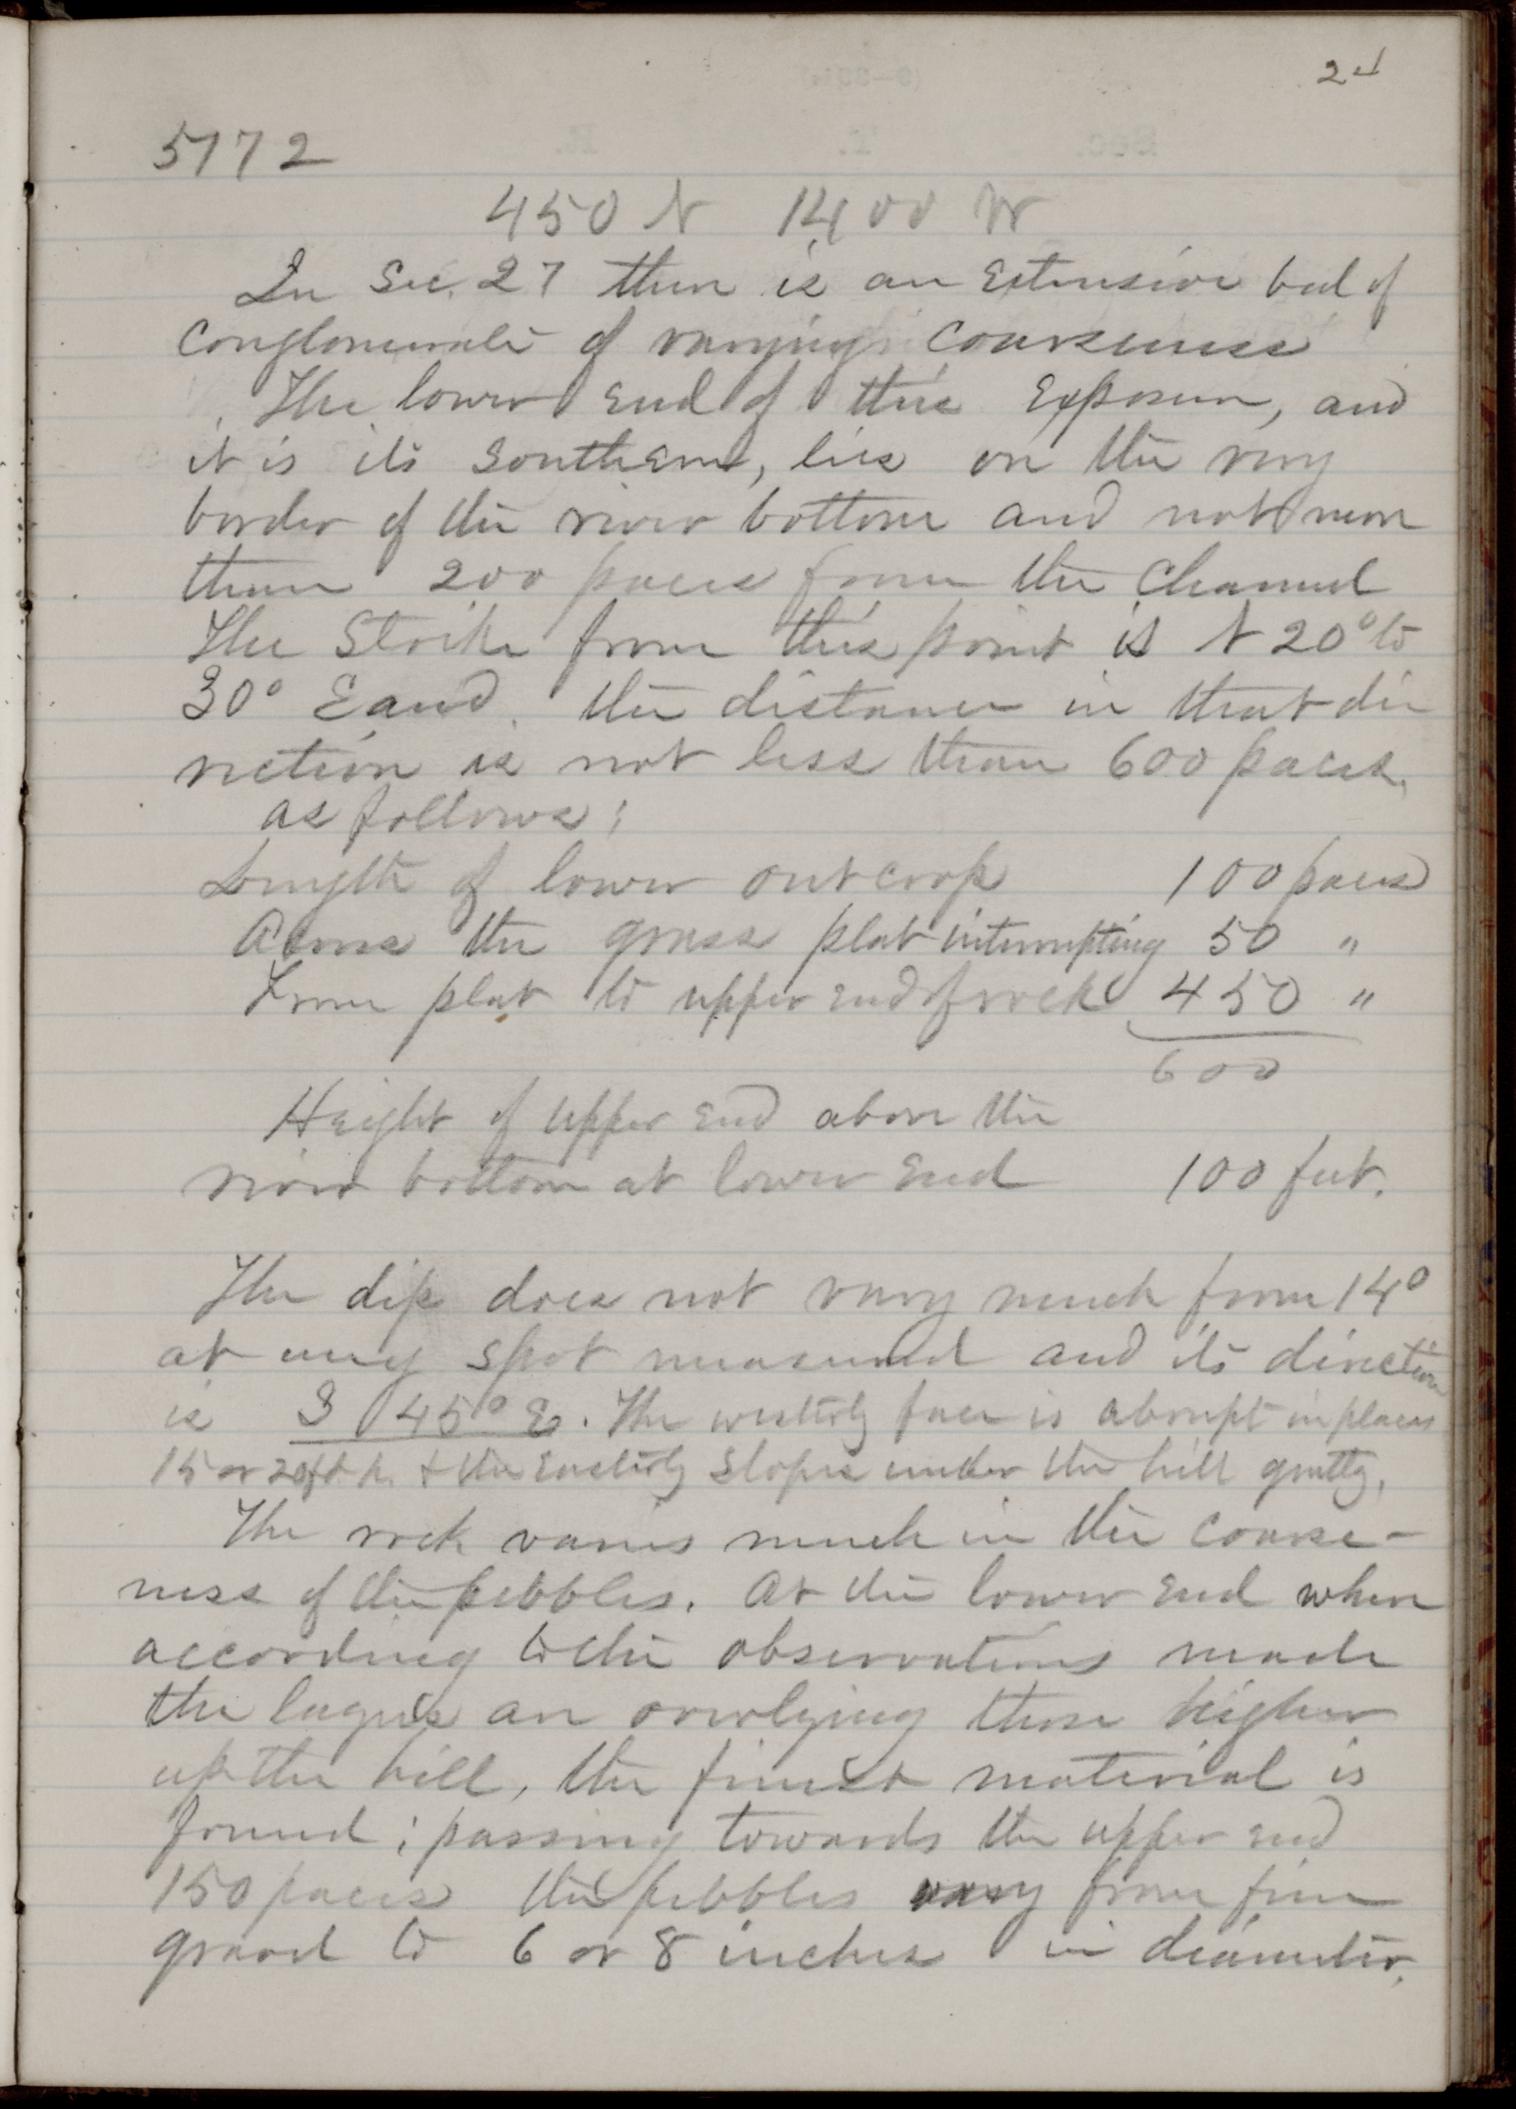 24
5172
450 N 1400 W
In Sec. 27 there is an extensive bed of
conglomerate of varying coarseness
The lower end of this exposure, and
it is its southern, lies on the very
border of the river bottom and not more
than 200 paces from the channel
The strike from this point is N 20° to
30° E and the distance in that di
rection is not less than 600 paces,
as follows:
Length of lower outcrop 100 paces
Across the grass plat interrupting 50 "
From plat to upper end of rock 450 "
600
Height of upper end above the
river bottom at lower end 100 feet.
The dip does not vary much from 14°
at any spot measured and its direction
is S 45° E. The westerly face is abrupt in places
15 or 20 ft h. & the easterly slopes under the hill gently.
The rock varies much in the coarse-
ness of the pebbles. At the lower end where
according to the observations made
the layers are overlying those higher
up the hill, the finest material is
found; passing towards the upper end
150 paces the pebbles vary from fine
gravel to 6 or 8 inches in diameter.